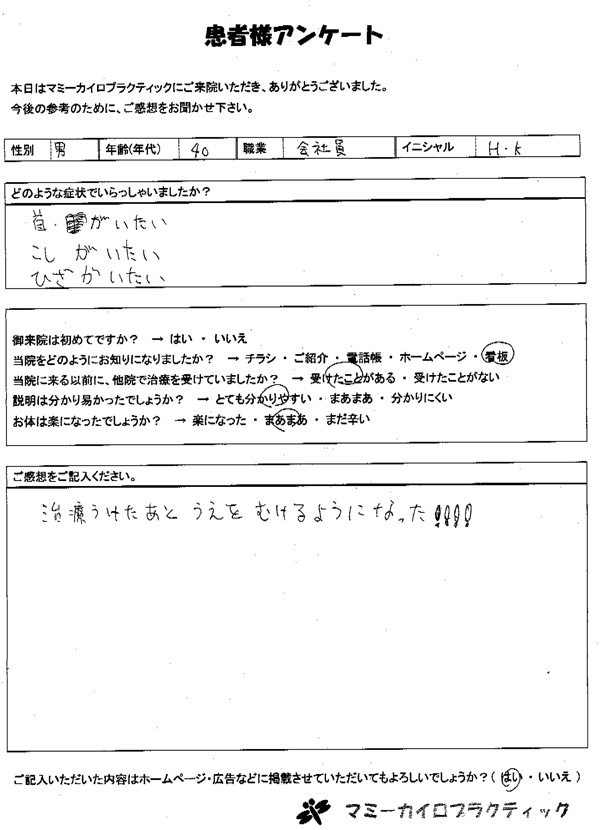 患者様アンケート
本日はマミーカイロプラクティックにご来院いただき、ありがとうございました。
今後の参考のために、ご感想をお聞かせ下さい。
性別 男 年齢(年代) 40 職業 会社員 イニシャル H・K
どのような症状でいらっしゃいましたか?
首・ がいたい
こし がいたい
ひざ がいたい
御来院は初めてですか? → はい ・ いいえ
当院をどのようにお知りになりましたか? → チラシ ・ ご紹介 ・ 電話帳 ・ ホームページ ・ 看板
当院に来る以前に、他院で治療を受けていましたか? → 受けたことがある ・ 受けたことがない
説明は分かり易かったでしょうか? → とても分かりやすい ・ まあまあ ・ 分かりにくい
お体は楽になったでしょうか? → 楽になった ・ まあまあ ・ まだ辛い
ご感想をご記入ください。
治療うけたあと うえを むけるようになった!!!!
ご記入いただいた内容はホームページ・広告などに掲載させていただいてもよろしいでしょうか?( はい ・ いいえ )
マミーカイロプラクティック